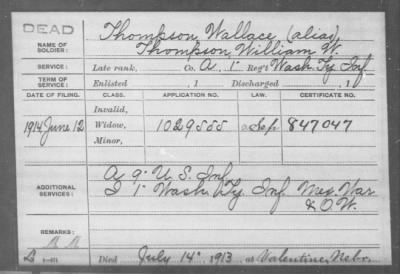 DEAD
Thompson Wallace (alias)
NAME OF SOLDIER: Thompson, William W.
SERVICE: Late rank, Co. A, 1 Reg't Wash. Ty Inf
TERM OF SERVICE: Enlisted , 1 Discharged , 1
DATE OF FILING. CLASS. APPLICATION NO. LAW. CERTIFICATE NO.
Invalid,
1914 June 12 Widow, 1029555 847047
Minor,
ADDITIONAL SERVICES: A 9" U.S. Inf
I 1" Wash. Ty. Inf Mex. War
& O.W.
REMARKS:
Died July 14", 1913, at Valentine, Nebr.